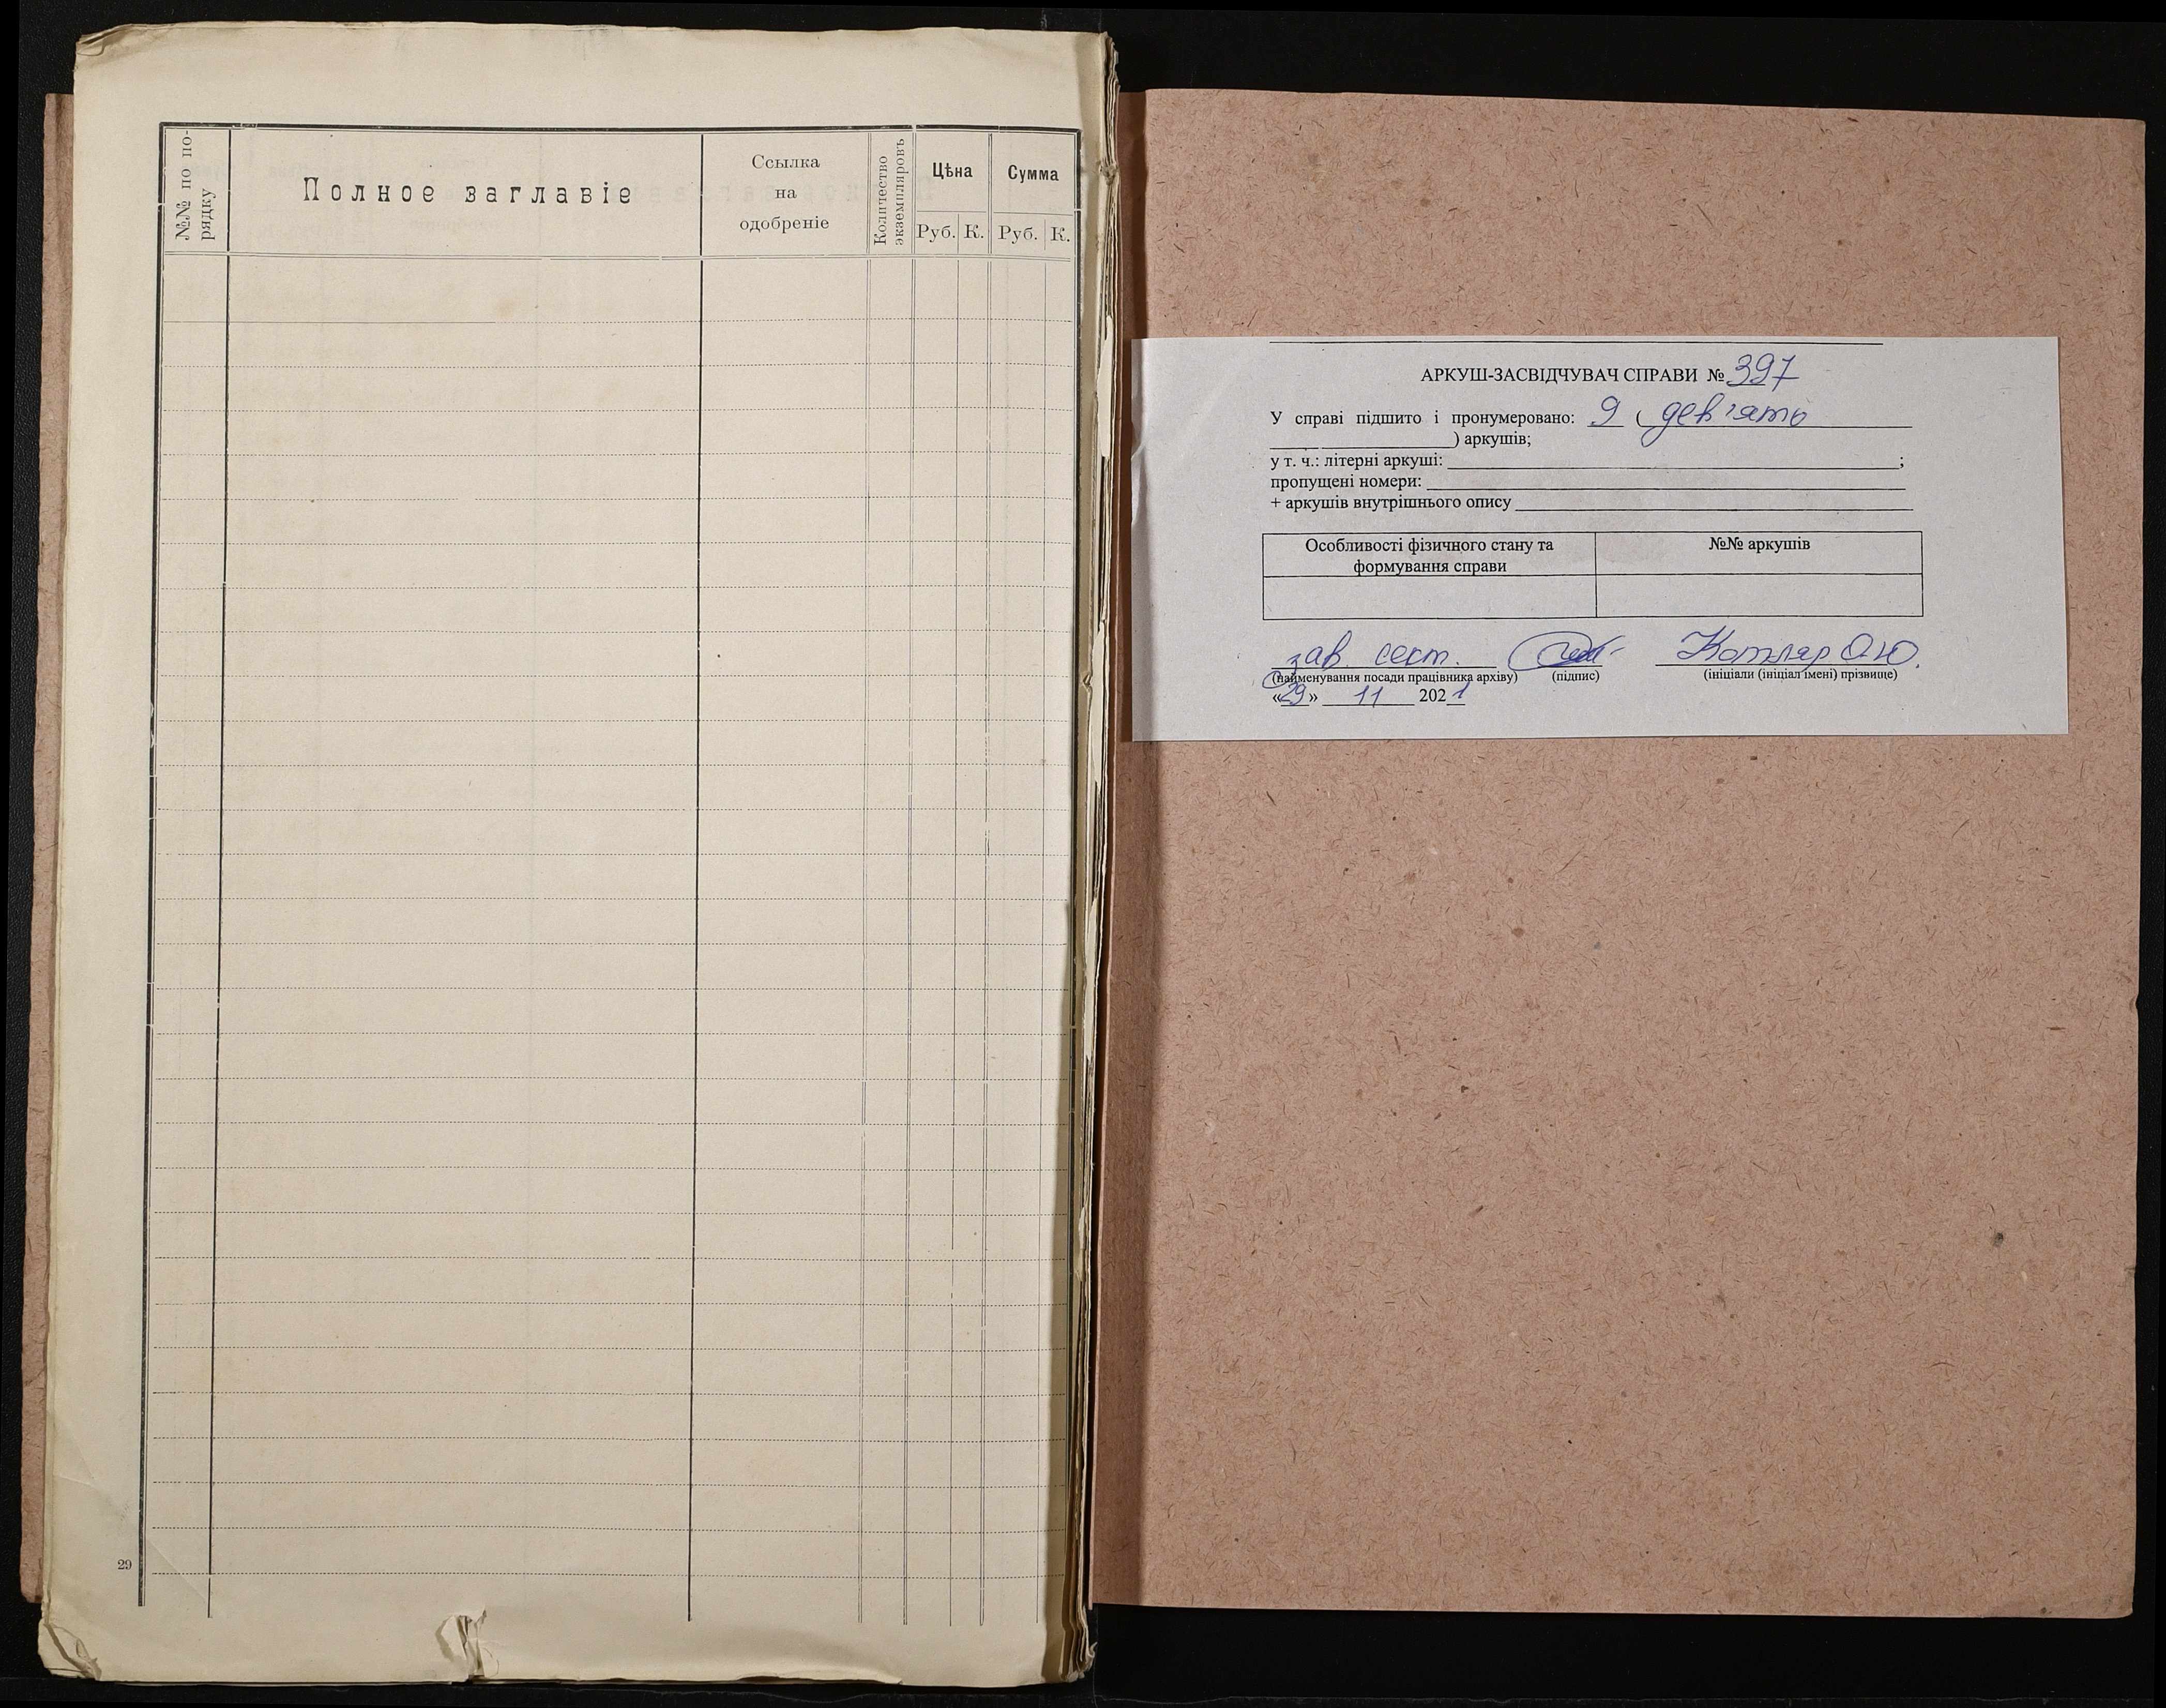 №№ по по-
рядку
Полное заглавіе
Ссылка
на
одобреніе
Количество
экземпляровъ
Цѣна
Сумма
Руб. К. Руб. К.
29
АРКУШ-ЗАСВІДЧУВАЧ СПРАВИ № 397
У справі підшито і пронумеровано: 9 ( дев'ять
) аркушів;
у т. ч.: літерні аркуші: ;
пропущені номери:
+ аркушів внутрішнього опису
Особливості фізичного стану та
формування справи
№№ аркушів
зав. сект. Котляр О.Ю.
(найменування посади працівника архіву) (підпис) (ініціали (ініціал імені) прізвище)
«29» 11 2021